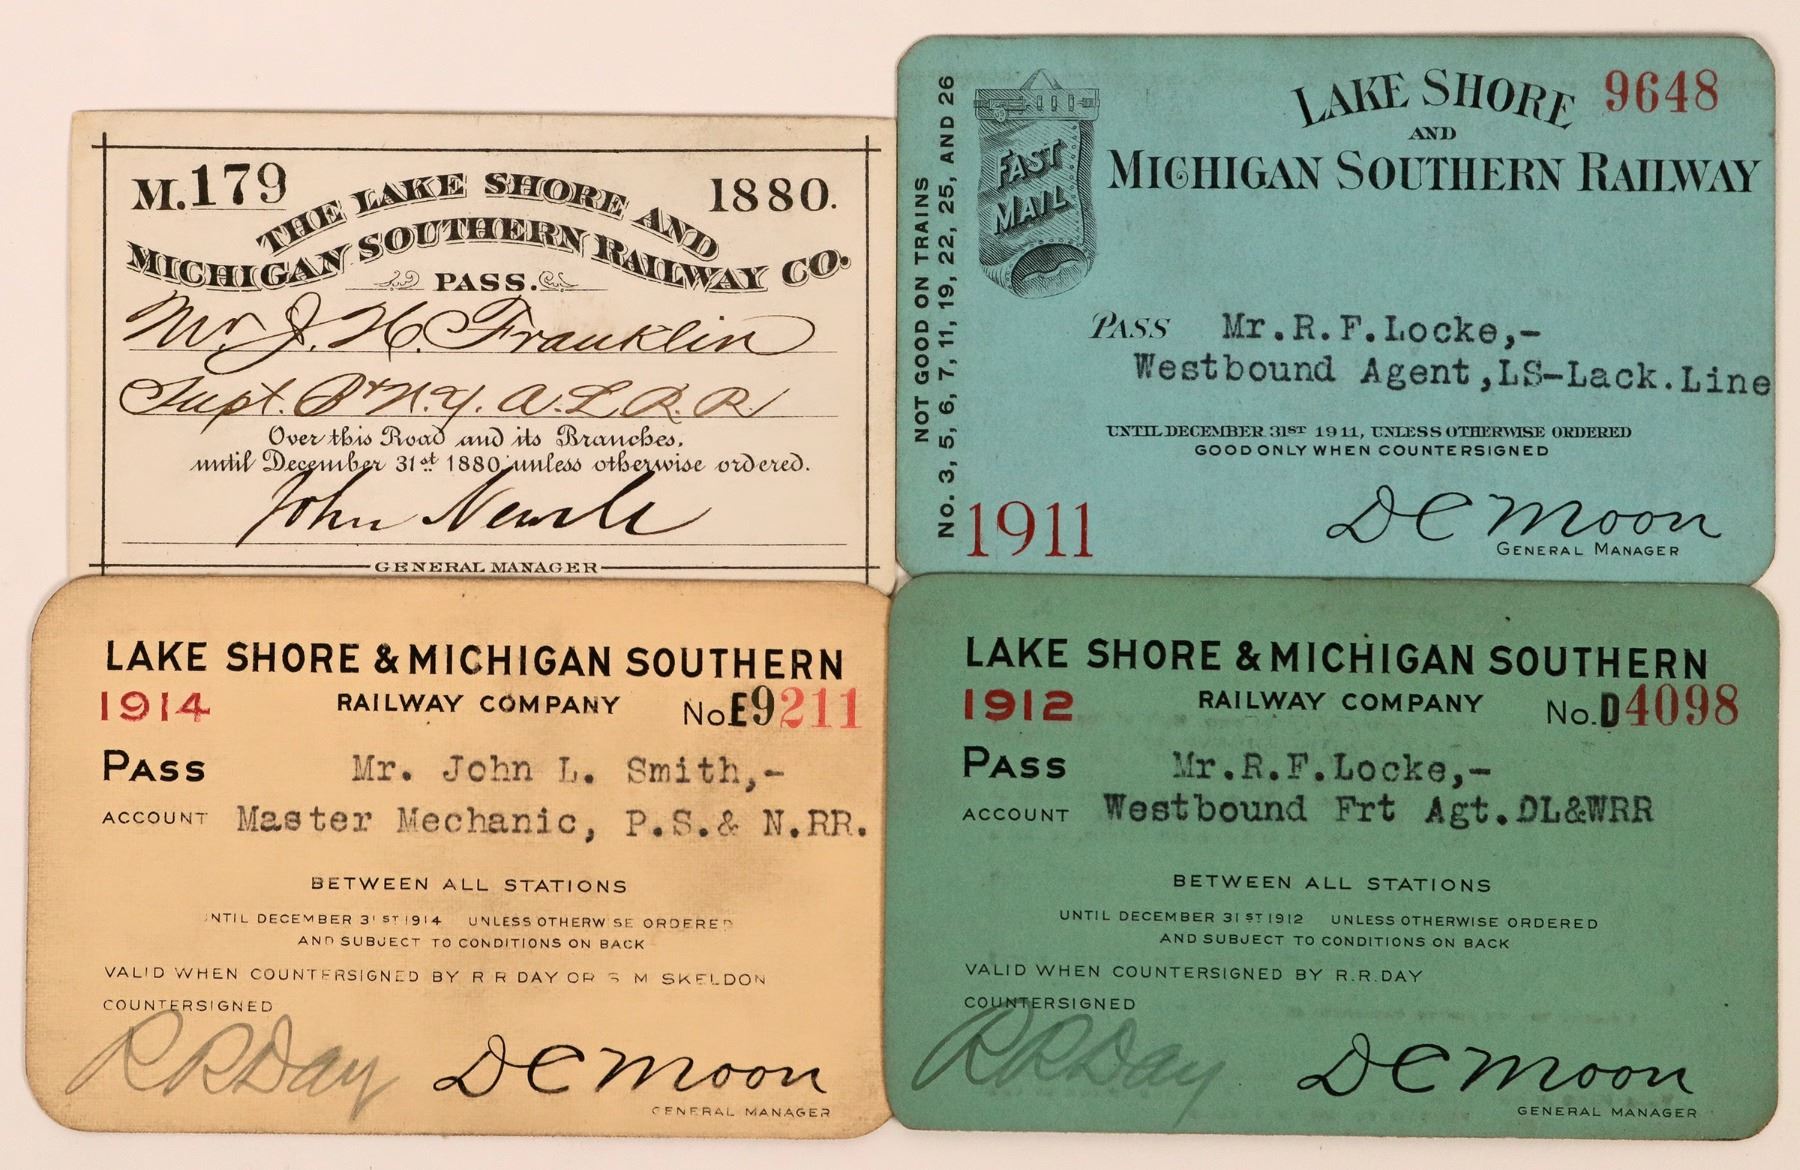 M.179 1880.
THE LAKE SHORE AND
MICHIGAN SOUTHERN RAILWAY CO.
PASS.
Mr. J. H. Franklin
Supt. B & N.Y. A.L. R. R.
Over this Road and its Branches,
until December 31st 1880 unless otherwise ordered.
John Newell
GENERAL MANAGER
NOT GOOD ON TRAINS
No. 3, 5, 6, 7, 11, 19, 22, 25, AND 26
FAST
MAIL
LAKE SHORE 9648
AND
MICHIGAN SOUTHERN RAILWAY
PASS Mr.R.F.Locke,-
Westbound Agent,LS-Lack.Line
UNTIL DECEMBER 31ST 1911, UNLESS OTHERWISE ORDERED
GOOD ONLY WHEN COUNTERSIGNED
1911
D C Moon
GENERAL MANAGER
LAKE SHORE & MICHIGAN SOUTHERN
1914 RAILWAY COMPANY No.E9211
PASS Mr. John L. Smith,-
ACCOUNT Master Mechanic, P.S.& N.RR.
BETWEEN ALL STATIONS
UNTIL DECEMBER 31ST 1914 UNLESS OTHERWISE ORDERED
AND SUBJECT TO CONDITIONS ON BACK
VALID WHEN COUNTERSIGNED BY R R DAY OR S M SKELDON
COUNTERSIGNED
R R Day D C Moon
GENERAL MANAGER
LAKE SHORE & MICHIGAN SOUTHERN
1912 RAILWAY COMPANY No.D4098
PASS Mr.R.F.Locke,-
ACCOUNT Westbound Frt Agt.DL&WRR
BETWEEN ALL STATIONS
UNTIL DECEMBER 31ST 1912 UNLESS OTHERWISE ORDERED
AND SUBJECT TO CONDITIONS ON BACK
VALID WHEN COUNTERSIGNED BY R.R.DAY
COUNTERSIGNED
R R Day D C Moon
GENERAL MANAGER